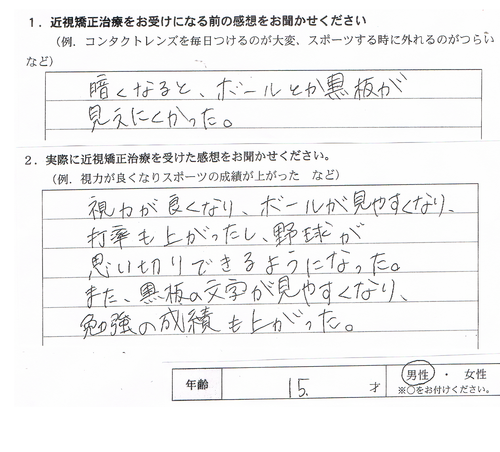 1．近視矯正治療をお受けになる前の感想をお聞かせください
（例．コンタクトレンズを毎日つけるのが大変、スポーツする時に外れるのがつらい
など）
暗くなると、ボールとか黒板が
見えにくかった。
2．実際に近視矯正治療を受けた感想をお聞かせください。
（例．視力が良くなりスポーツの成績が上がった　など）
視力が良くなり、ボールが見やすくなり、
打率も上がったし、野球が
思い切りできるようになった。
また、黒板の文字が見やすくなり、
勉強の成績も上がった。
年齢　15.　才　男性　・　女性
※○をお付けください。